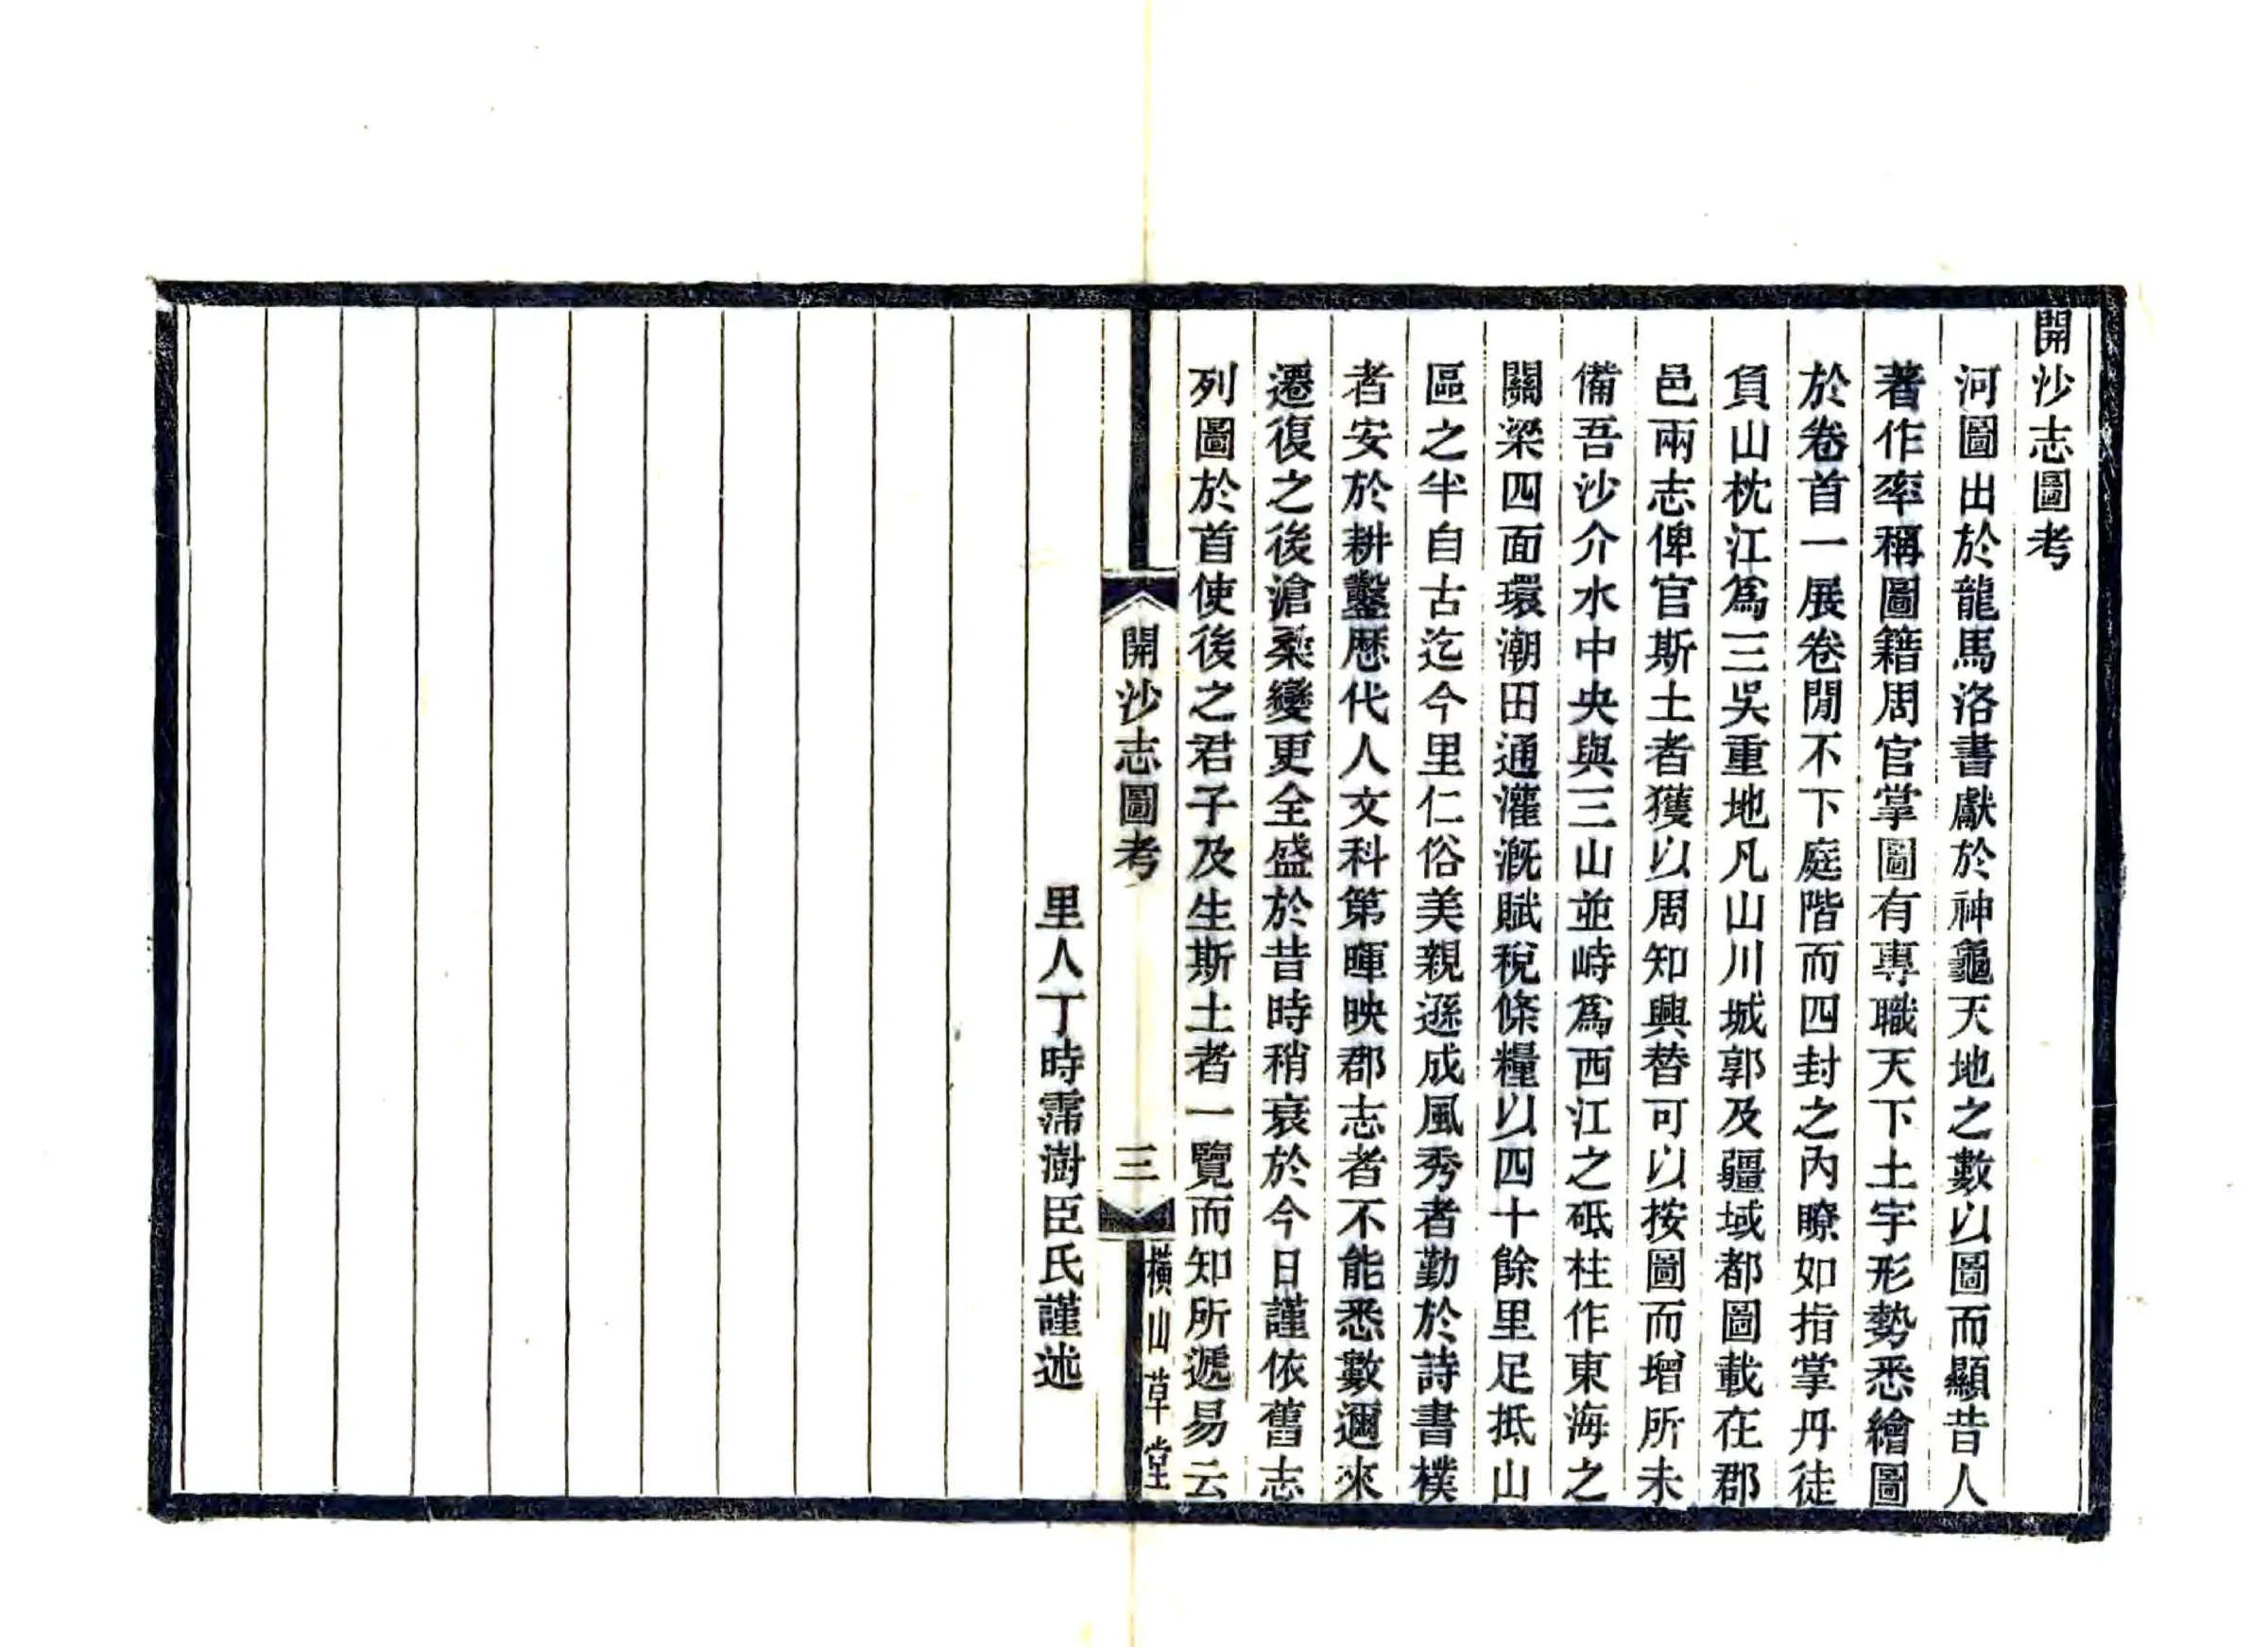 開沙志圖考
河圖出於龍馬洛書獻於神龜天地之數以圖而顯昔人
著作率稱圖籍周官掌圖有專職天下土宇形勢悉繪圖
於卷首一展卷閒不下庭階而四封之內瞭如指掌丹徒
負山枕江爲三吳重地凡山川城郭及疆域都圖載在郡
邑兩志俾官斯土者獲以周知興替可以按圖而增所未
備吾沙介水中央與三山並峙爲西江之砥柱作東海之
關梁四面環潮田通灌漑賦稅條糧以四十餘里足抵山
區之半自古迄今里仁俗美親遜成風秀者勤於詩書樸
者安於耕鑿歷代人文科第暉映郡志者不能悉數邇來
遷復之後滄桑變更全盛於昔時稍衰於今日謹依舊志
列圖於首使後之君子及生斯土者一覽而知所遞易云
開沙志圖考
三
橫山草堂
里人丁時霈澍臣氏謹述